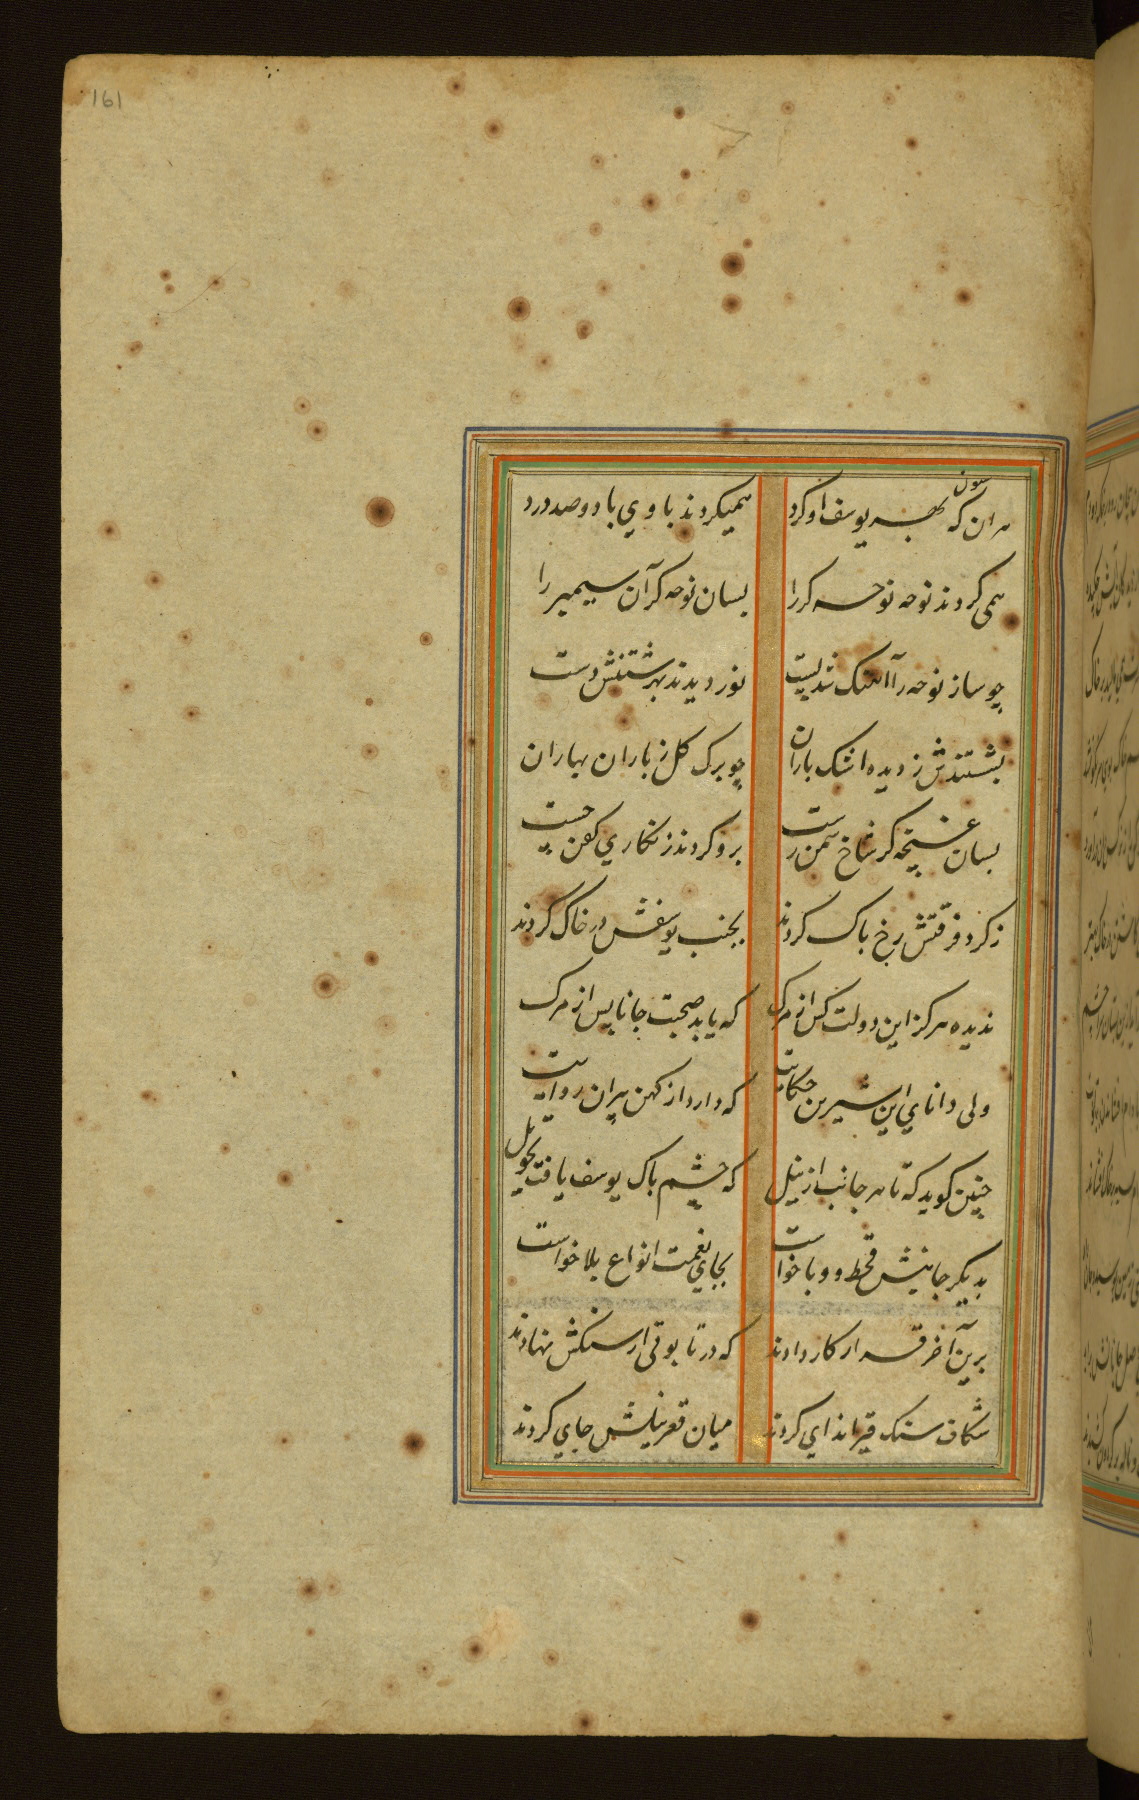 161
هران که سون بهر یوسف او کرد همیکردند با وي با دو صد درد
همی کردند نوحه نوحه کر را بسان نوحه کر آن سیمبر را
چو ساز نوحه را آهنک شد پست نوردیدند بهر شستنش دست
بشستندش ز دیده اشک باران چو برک کل ز باران بهاران
بسان غنچه کز شاخ سمن رست برو کردند زنکاري کفن چست
ز کرد فرقتش رخ باک کردند بجنب یوسفش در خاک کردند
ندیده هرکز این دولت کس از مرک که یابد صحبت جانا پس از مرک
ولی داناي این شیرین حکایت که دارد از کهن پیران روایت
چنین کوید که تا هر جانب از نیل که جشم باک یوسف یافت تحویل
بدیکر جانبش قحط و وبا خواست بجاي نعمت انواع بلا خواست
برین آخر قرار کار دادند که در تابوتی از سنکش نهادند
شکاف سنک قیر اندای کردند میان قعر نیلش جاي کردند